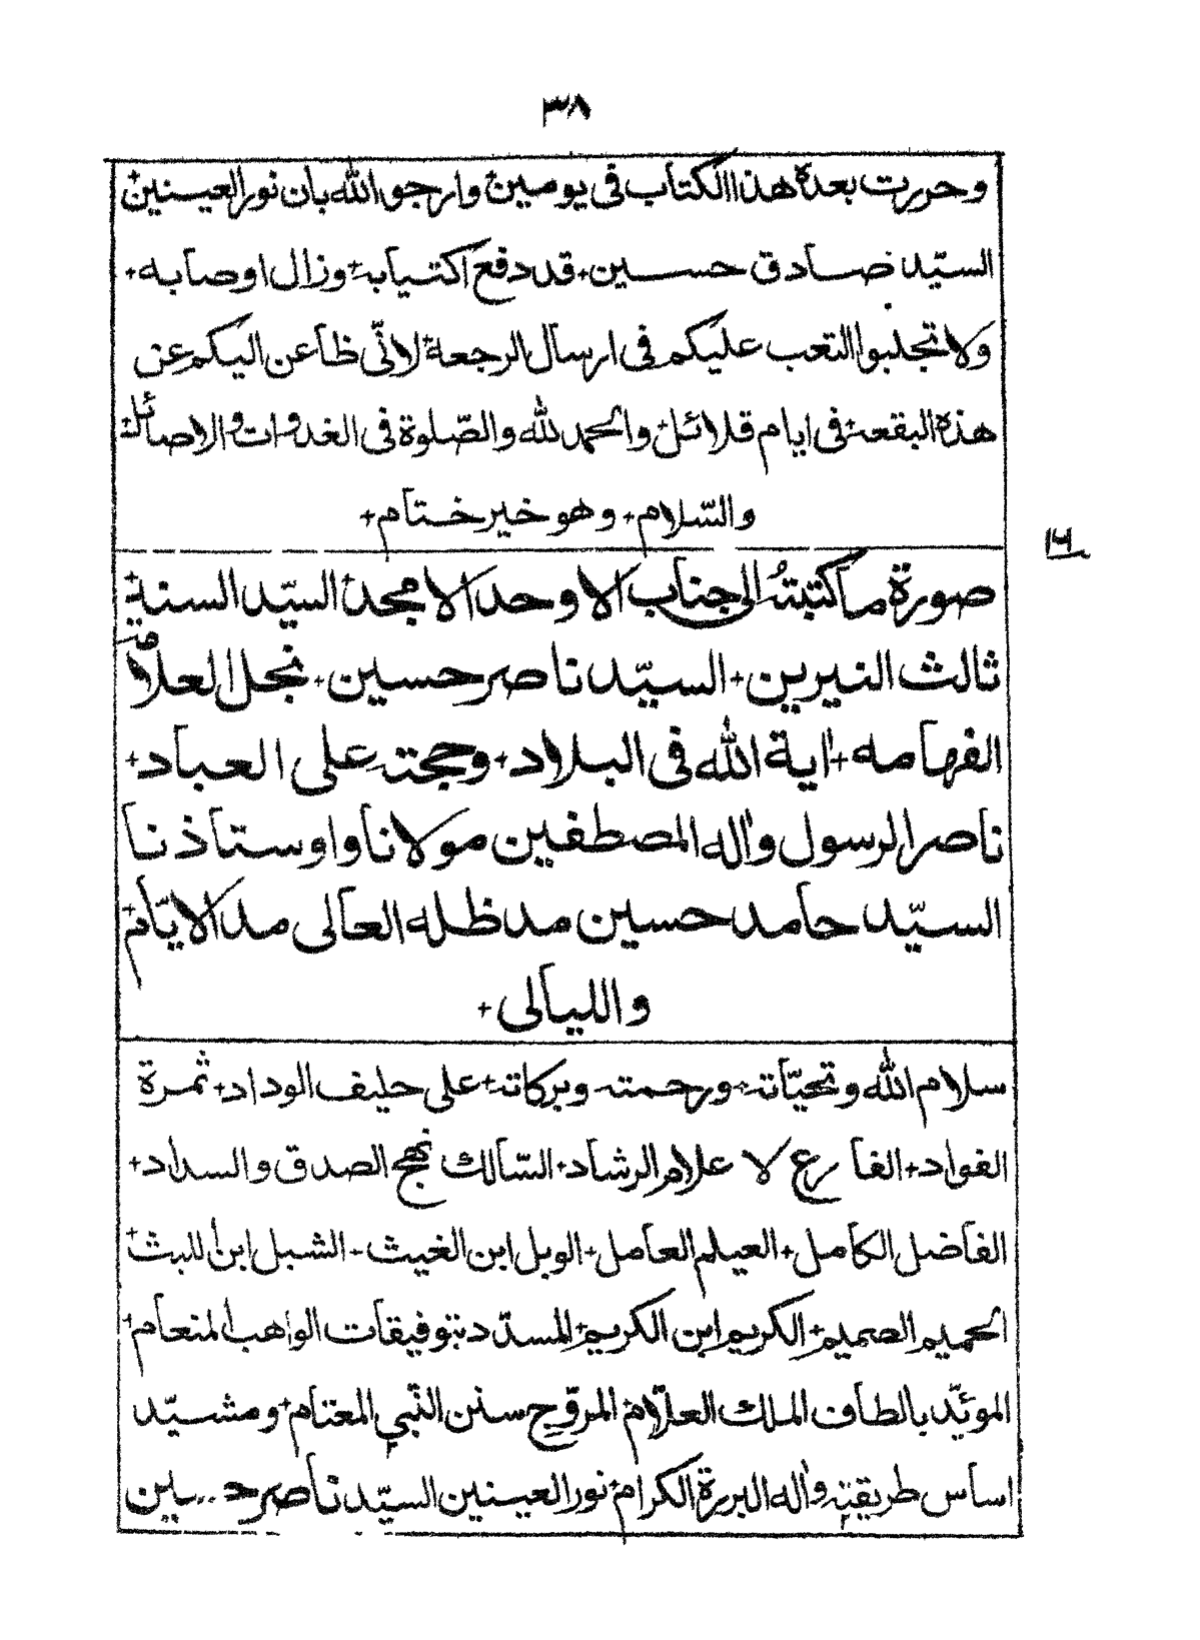 ٣٨
وحررت بعدة هذا الكتاب فى يومين+ وارجو الله بان نور العينين+
السيّد صادق حسين+ قد دفع اكتيابه+ وزال اوصابه+
ولا تجلبوا التعب عليكم فى ارسال الرجعة+ لانّى ظاعن اليكم عن
هذه البقعة+ فى ايام قلائل+ والحمد لله والصّلوة فى الغدوات والاصائل+
والسّلام+ وهو خير ختام+
١٦
صورة ما كتبته الى جناب الاوحد الامجد+ السيّد السند+
ثالث النيرين+ السيّد ناصر حسين+ نجل العلامة
الفهامه+ اية الله فى البلاد+ وحجته على العباد+
ناصر الرسول واله المصطفين مولانا واوستاذنا
السيّد حامد حسين مد ظله العالى مد الايّام+
والليالى+
سلام الله وتحيّاته+ ورحمته وبركاته+ على حليف الوداد+ ثمرة
الفواد+ الفارع لاعلام الرشاد+ السّالك نهج الصدق والسداد+
الفاضل الكامل+ العيلم العامل+ الوبل ابن الغيث+ الشبل ابن الليث+
الحميم الصميم+ الكريم ابن الكريم+ المسدّد بتوفيقات الواهب المنعام+
الموئيّد بالطاف الملك العلّام+ المروّج سنن النّبى المعتام+ ومشيّد
اساس طريقته واله البررة الكرام+ نور العينين السيّد ناصر حسين